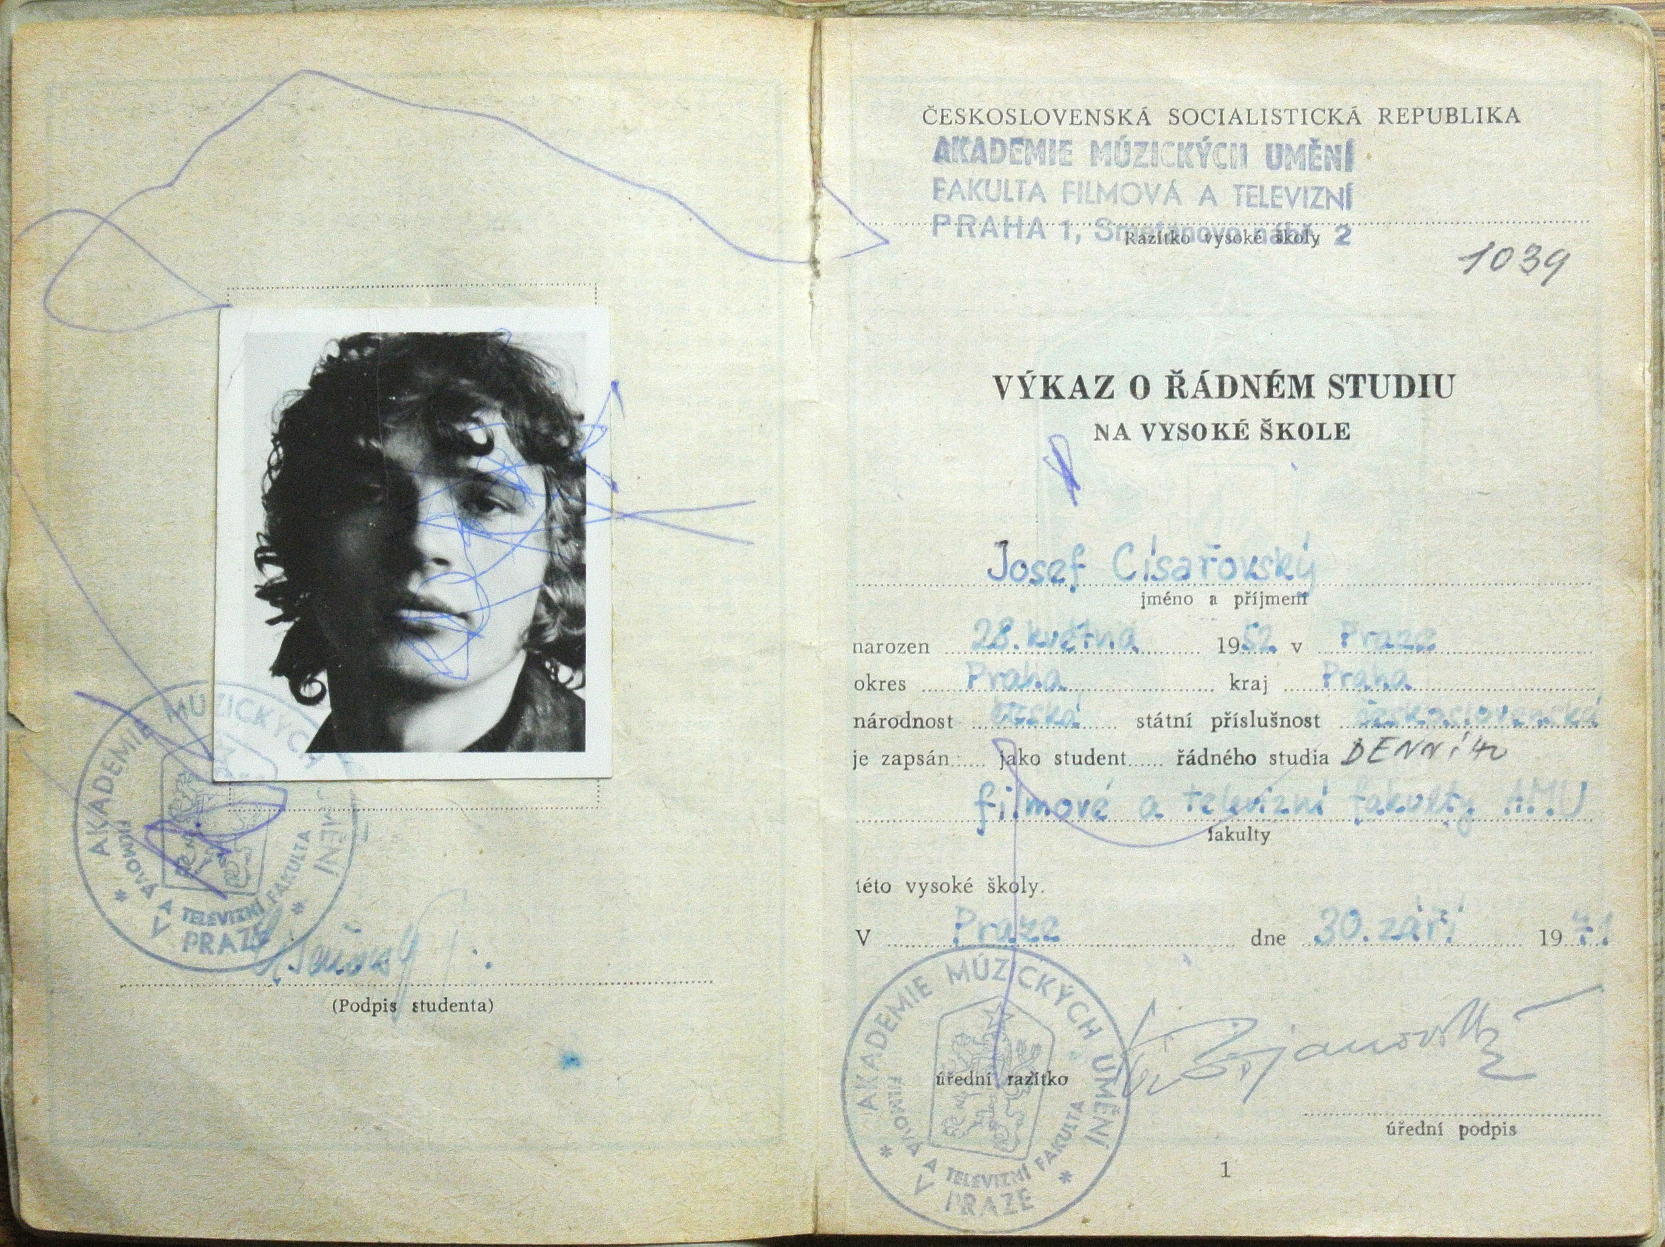 AKADEMIE MÚZICKÝCH UMĚNÍ
FILMOVÁ A TELEVIZNÍ FAKULTA
V PRAZE
(Podpis studenta)
ČESKOSLOVENSKÁ SOCIALISTICKÁ REPUBLIKA
AKADEMIE MÚZICKÝCH UMĚNÍ
FAKULTA FILMOVÁ A TELEVIZNÍ
PRAHA 1, Smetanovo nábř. 2
Razítko vysoké školy
1039
VÝKAZ O ŘÁDNÉM STUDIU
NA VYSOKÉ ŠKOLE
Josef Císařovský
jméno a příjmení
narozen 28. května 1952 v Praze
okres Praha kraj Praha
národnost česká státní příslušnost československá
je zapsán jako student řádného studia DENNÍHO
filmové a televizní fakulty AMU
fakulty
této vysoké školy.
V Praze dne 30. září 1971
AKADEMIE MÚZICKÝCH UMĚNÍ
FILMOVÁ A TELEVIZNÍ FAKULTA
V PRAZE
úřední razítko
úřední podpis
1